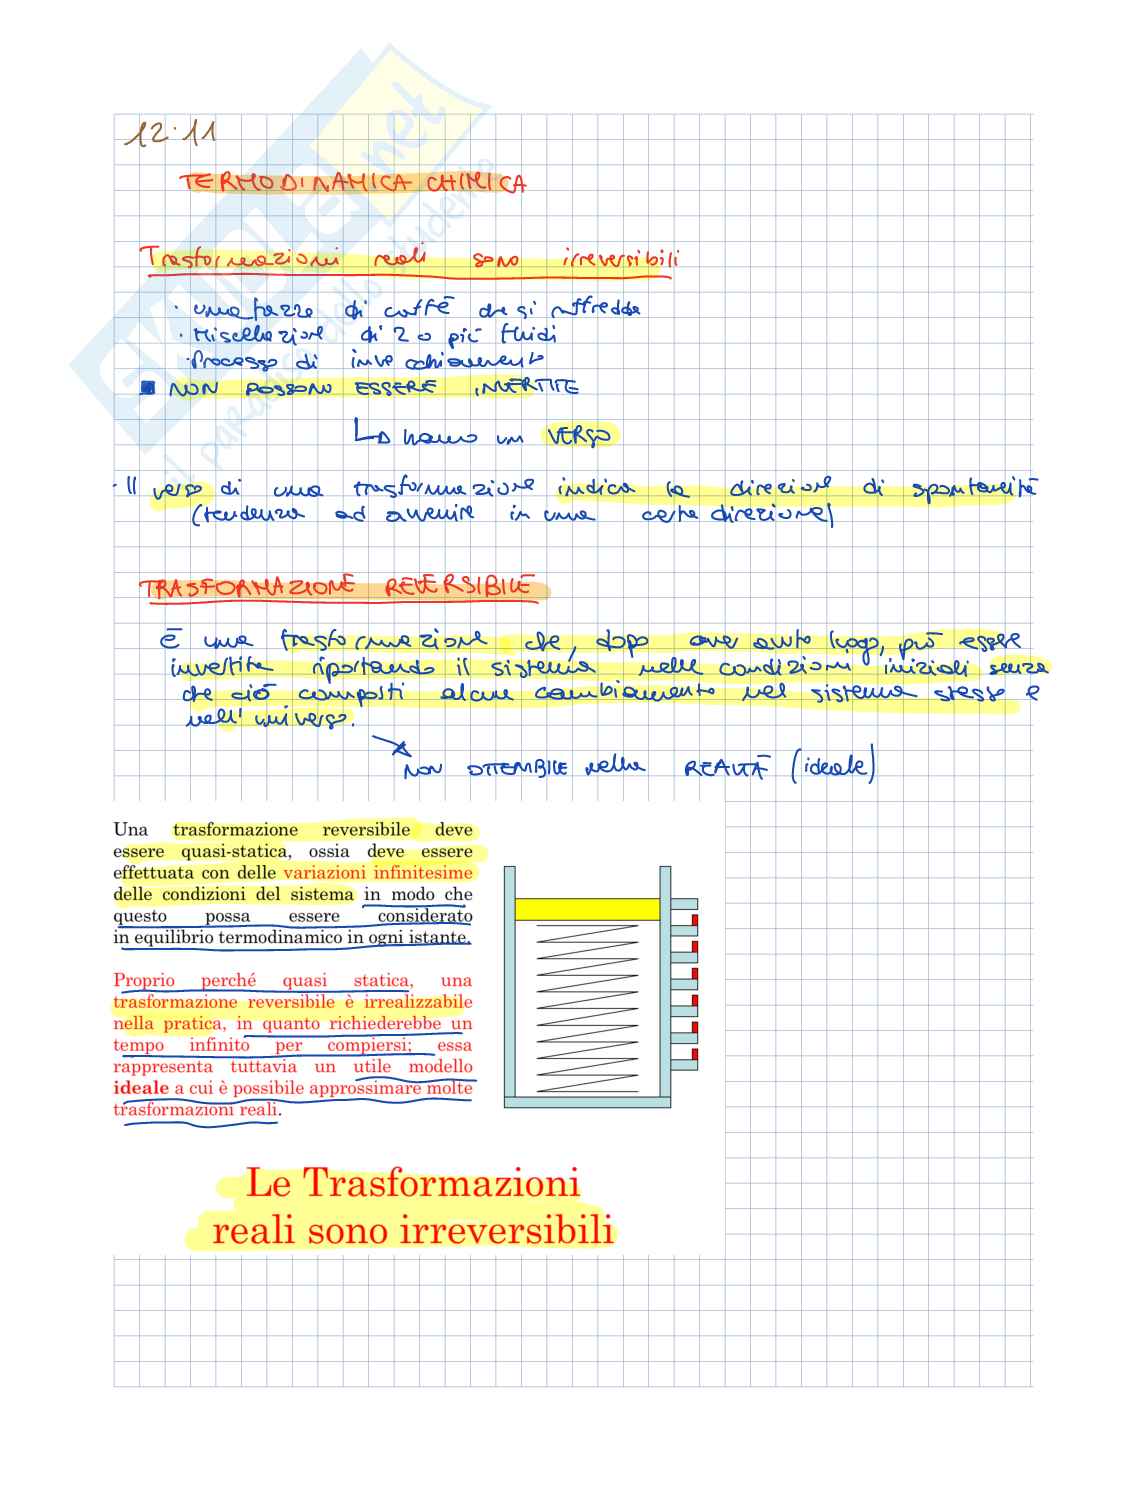 12.11
TERMODINAMICA CHIMICA
Trasformazioni reali sono irreversibili
· una tazza di caffè che si raffredda
· Miscelazione di 2 o più fluidi
· Processo di invecchiamento
NON POSSONO ESSERE INVERTITE
↳ hanno un VERSO
· Il verso di una trasformazione indica la direzione di spontaneità
(tendenza ad avvenire in una certa direzione)
TRASFORMAZIONE REVERSIBILE
È una trasformazione che, dopo aver avuto luogo, può essere
invertita riportando il sistema nelle condizioni iniziali senza
che ciò comporti alcun cambiamento nel sistema stesso e
nell' universo.
NON OTTENIBILE nella REALTÀ (ideale)
Una trasformazione reversibile deve
essere quasi-statica, ossia deve essere
effettuata con delle variazioni infinitesime
delle condizioni del sistema in modo che
questo possa essere considerato
in equilibrio termodinamico in ogni istante.
Proprio perché quasi statica, una
trasformazione reversibile è irrealizzabile
nella pratica, in quanto richiederebbe un
tempo infinito per compiersi; essa
rappresenta tuttavia un utile modello
ideale a cui è possibile approssimare molte
trasformazioni reali.
Le Trasformazioni
reali sono irreversibili